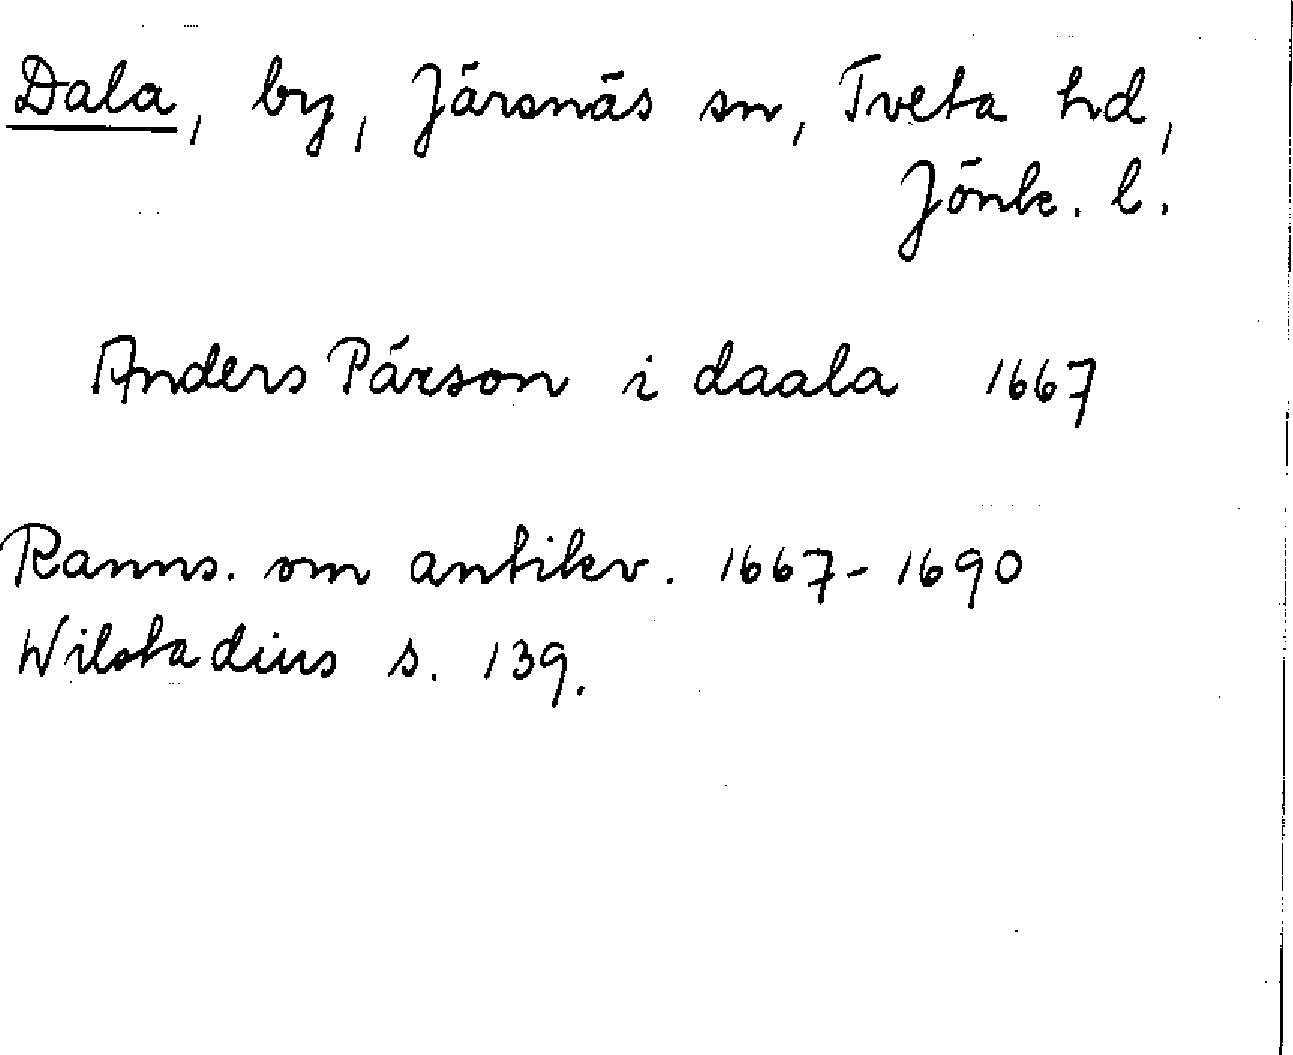 Dala, by, Järsnäs sn, Tveta hd,
Jönk. l.
Anders Pärson i daala 1667
Ranns. om antikv. 1667-1690
Wilstadius s. 139.